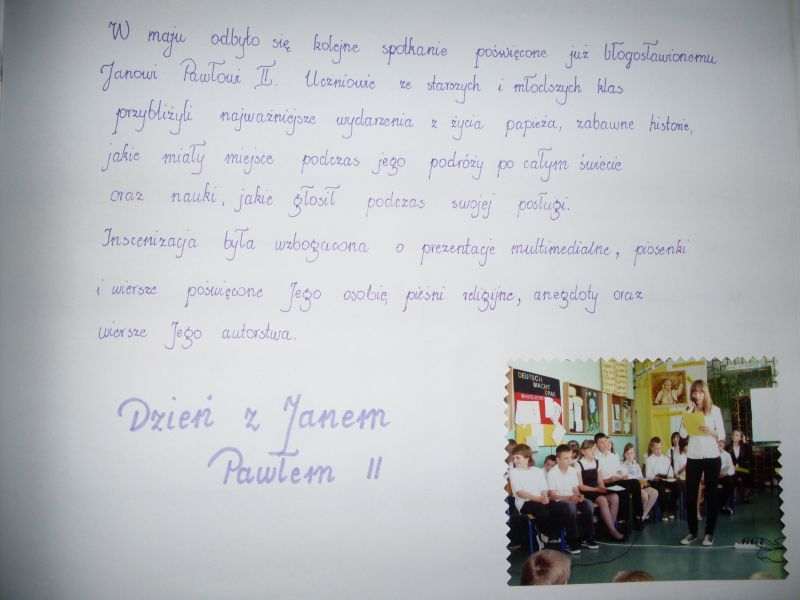 W maju odbyło się kolejne spotkanie poświęcone już błogosławionemu
Janowi Pawłowi II. Uczniowie ze starszych i młodszych klas
przybliżyli najważniejsze wydarzenia z życia papieża, zabawne historie,
jakie miały miejsce podczas jego podróży po całym świecie
oraz nauki, jakie głosił podczas swojej posługi.
Inscenizacja była wzbogacona o prezentacje multimedialne, piosenki
i wiersze poświęcone Jego osobie, pieśni religijne, anegdoty oraz
wiersze Jego autorstwa.
Dzień z Janem
Pawłem II
DEUTSCH
MACHT
SPAß